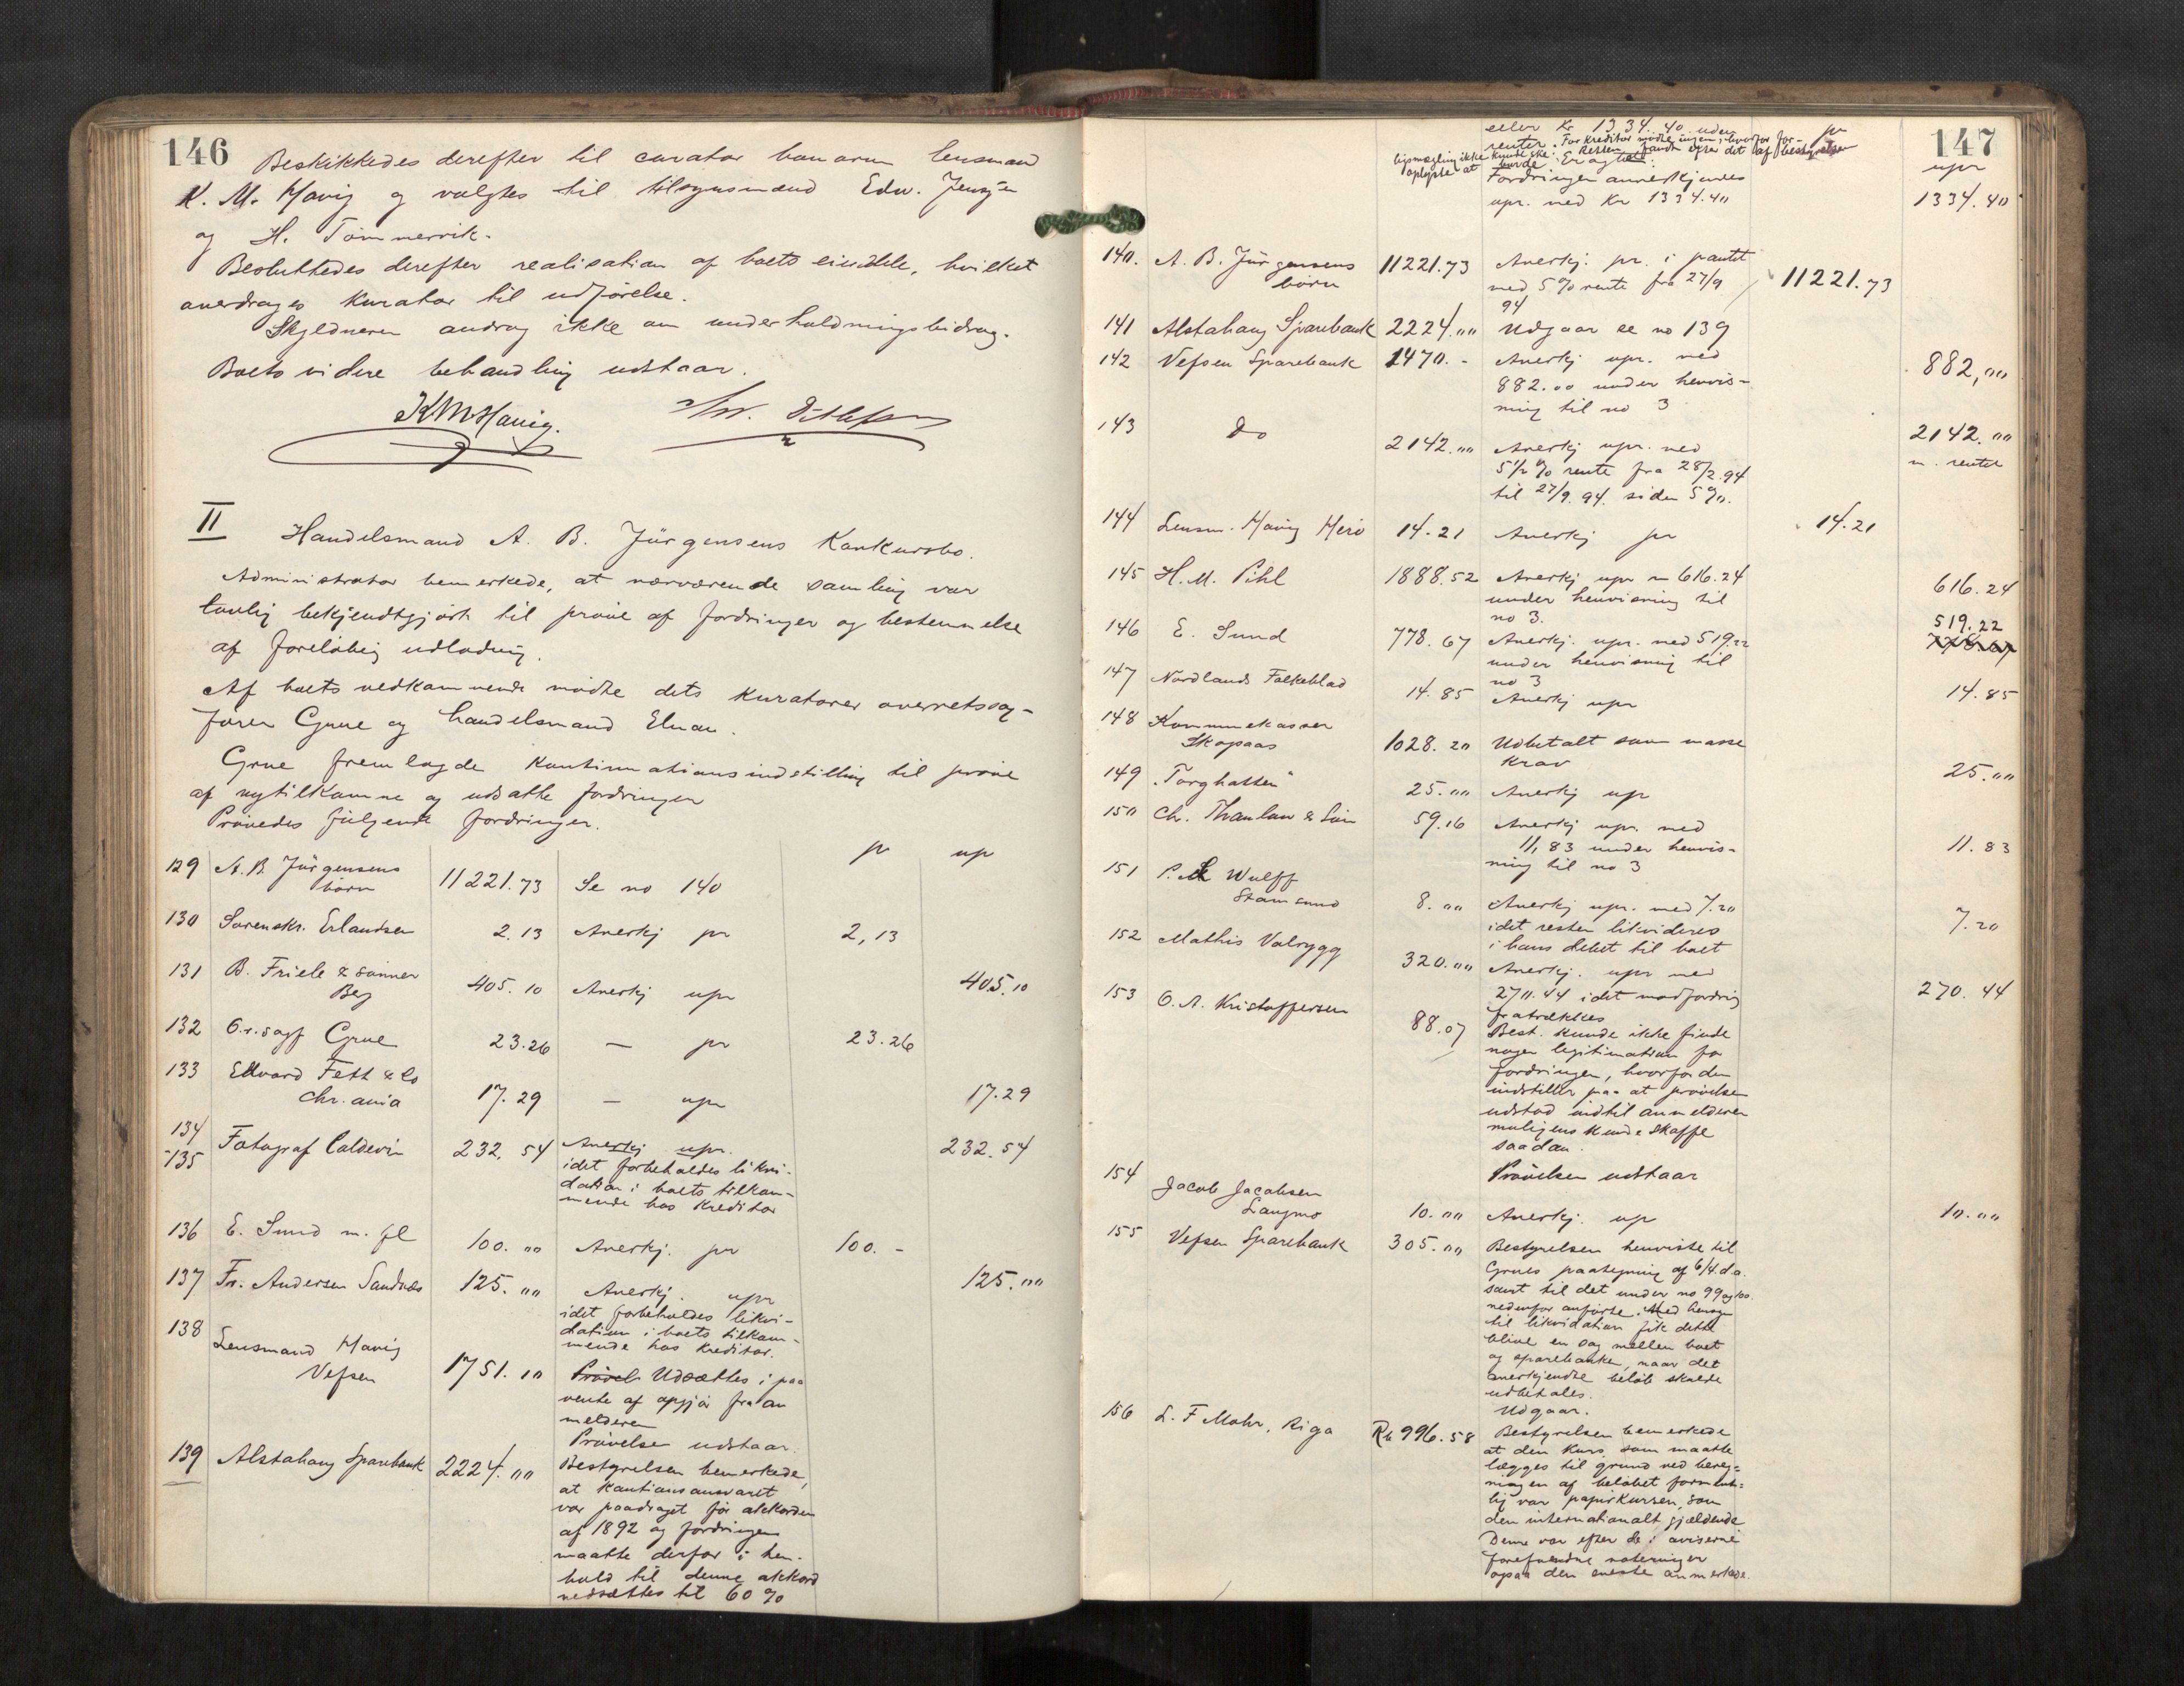 146
Beskikkedes derefter til curator bonorum lensmand
K. M. Havig og valgtes til tilsynsmænd Edv. Jensen
og H. Tømmervik.
Besluttedes derefter realisation af boets eiendele, hvilket
overdroges kurator til udførelse.
Skyldneren androg ikke om underholdningsbidrag.
Boets videre behandling udstaar.
KMHavig.
II Handelsmand A. B. Jürgensens Konkursbo.
Administrator bemerkede, at nærværende samling var
lovlig bekjendtgjort til prøve af fordringer og bestemmelse
af foreløbig udlodning.
Af boets vedkommende mødte dets kuratorer overretssag-
fører Grue og handelsmand
Grue fremlagde kontinuationsindstilling til prøve
af nytilkomne og udsatte fordringer
Prøvedes følgende fordringer.
pr upr
129 A. B. Jürgensens børn 11221.73 Se no 140
130 Sorenskr. Erlandsen 2.13 Anerkj pr 2,13
131 B. Friele & sønner Bg 405.10 Anerkj upr 405.10
132 O.r.sagf Grue 23.26 — pr 23.26
133 Edvard Fett & Co
Chr.ania 17.29 — upr 17.29
134
-135 Fotograf Caldevin 232,54 Anerkj upr. 232.54
idet forbeholdes likvi-
dation i boets tilkom-
mende hos kreditor
136 E. Sund m. fl 100.00 Anerkj. pr 100.-
137 Fr. Andersen Sandnes 125.00 Anerkj. upr 125.00
idet forbeholdes likvi-
dation i boets tilkom-
mende hos kreditor.
138 Lensmand Havig
Vefsen 1751.10 Prøvel Udsættes i paa
vente af opgjør fra an
melderen
Prøvelse udstaar.
139 Alstahaug Sparebank 2224.00 Bestyrelsen bemerkede,
at kautionsansvaret
var paadraget før akkorden
af 1892 og fordringen
maatte derfor i hen-
hold til denne akkord
nedsættes til 60 %
147
eller kr 1334.40 uden pr
renter. For kreditor mødte ingen, hvorfor for-
ligsmægling ikke kunde ske. Retten fandt efter det af bestyrelsen
oplyste at burde Eragte: upr
Fordringen anerkjendes
upr. med kr 1334.40 1334.40
140. A. B. Jürgensens
børn 11221.73 Anerkj. pr. i pantet 11221.73
med 5 % rente fra 27/9
94
141 Alstahaug Sparebank 2224.00 Udgaar se no 139
142 Vefsen Sparebank 1470.- Anerkj upr. med 882,00
882.00 under henvis-
ning til no 3
143 Do 2142.00 Anerkj upr. med 2142.00
5½ % rente fra 28/2.94 m. renter
til 27/9.94. siden 5 %.
144 Lensm. Havig Herø 14.21 Anerkj pr 14.21
145 H. M. Pihl 1888.52 Anerkj upr m 616.24 616.24
under henvisning til
no 3.
146 E. Sund 778.67 Anerkj. upr. med 519.22 519.22
under henvisning til 778.67
no 3
147 Nordlands Folkeblad 14.85 Anerkj upr 14.85
148 Kommunekasser
Skopaas 1028.20 Udbetalt som masse
krav
149 "Torghatten" 25.00 Anerkj upr 25.00
150 Chr. Thaulow & Søn 59.16 Anerkj upr. med 11.83
11,83 under henvis-
ning til no 3
151 Wulff
Stamsund 8.00 Anerkj upr. med 7.20 7.20
idet resten likvideres
i hans debet til boet
152 Mathis Valrygg 320.00 Anerkj. upr med 270.44
270.44 idet modfordring
fratrækkes
153 O. A. Kristoffersen 88.07 Best. kunde ikke finde
nogen legitimation for
fordringen, hvorfor den
indstiller paa at prøvelsen
udstod indtil anmelderen
muligens kunde skaffe
saadan.
Prøvelsen udstaar
154 Jacob Jacobsen
Langmo 10.00 Anerkj. upr 10.00
155 Vefsen Sparebank 305.00 Bestyrelsen henviste til
Grues paategning af 6/4 d.a.
samt til det under no 99 og 100
nedenfor anførte. Med hensyn
til likvidation fik dette
blive en sag mellem boet
og sparebanken, naar det
anerkjendte beløb skulde
udbetales.
Udgaar.
156 L. F Mohr, Riga Rb 996.58 Bestyrelsen bemerkede
at den kurs, som maatte
lægges til grund ved bereg-
ningen af beløbet forment-
lig var papirkursen, som
den internationalt gjældende
Denne var efter de i aviserne
forefundne noteringer
ogsaa den eneste anmerkede.